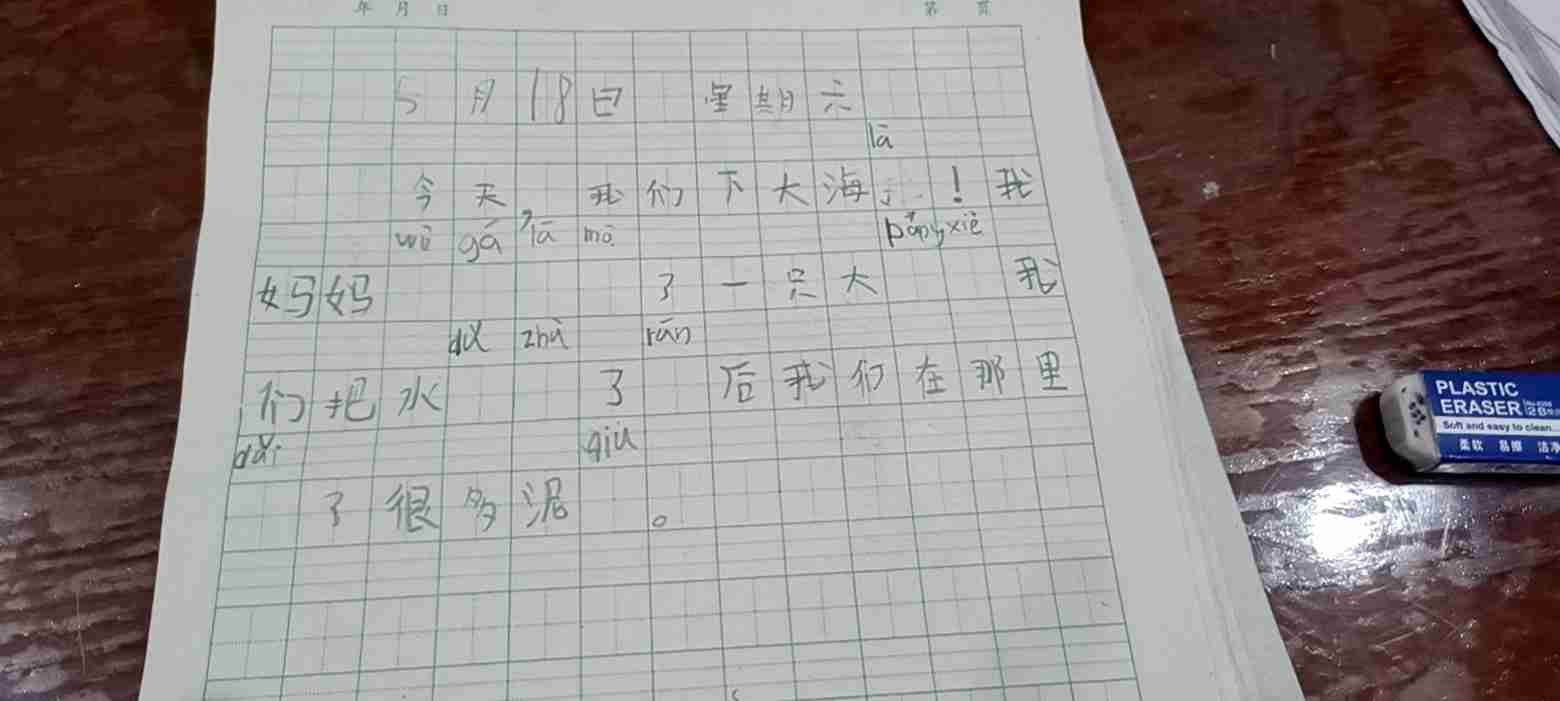 年 月 日
第 页
5月18日 星期六
lā
今天,我们下大海了!我
wō gā lā mō
páng xiè
妈妈 了一只大 我
dǔ zhù rán
们把水 了 后我们在那里
dǎi qiū
了很多泥 。
PLASTIC
ERASER
Soft and easy to clean
柔软 易擦 洁净